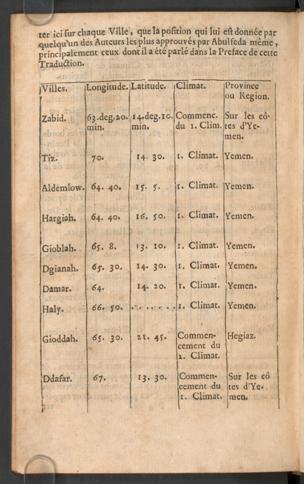 ter ici sur chaque Ville, que la position qui lui est donnée par
quelqu'un des Auteurs les plus approuvés par Abulfeda même,
principalement ceux dont il a été parlé dans la Preface de cette
Traduction.
Villes. Longitude. Latitude. Climat. Province
ou Region.
Zabid. 63.deg.20. 14.deg.10. Commenc. Sur les cô-
min. min. du 1. Clim. tes d'Ye-
men.
Tiz. 70. 14. 30. 1. Climat. Yemen.
Aldemlow. 64. 40. 15. 5. 1. Climat. Yemen.
Hargiah. 64. 40. 16. 50. 1. Climat. Yemen.
Gioblah. 65. 8. 13. 10. 1. Climat. Yemen.
Dgianah. 65. 30. 14. 30. 1. Climat. Yemen.
Damar. 64. 14. 20. 1. Climat. Yemen.
Haly. 66. 50. . . . . . . 1. Climat. Yemen.
Gioddah. 65. 30. 21. 45. Commen- Hegiaz.
cement du
2. Climat.
Ddafar. 67. 13. 30. Commen- Sur les cô
cement du tes d'Ye-
1. Climat. men.